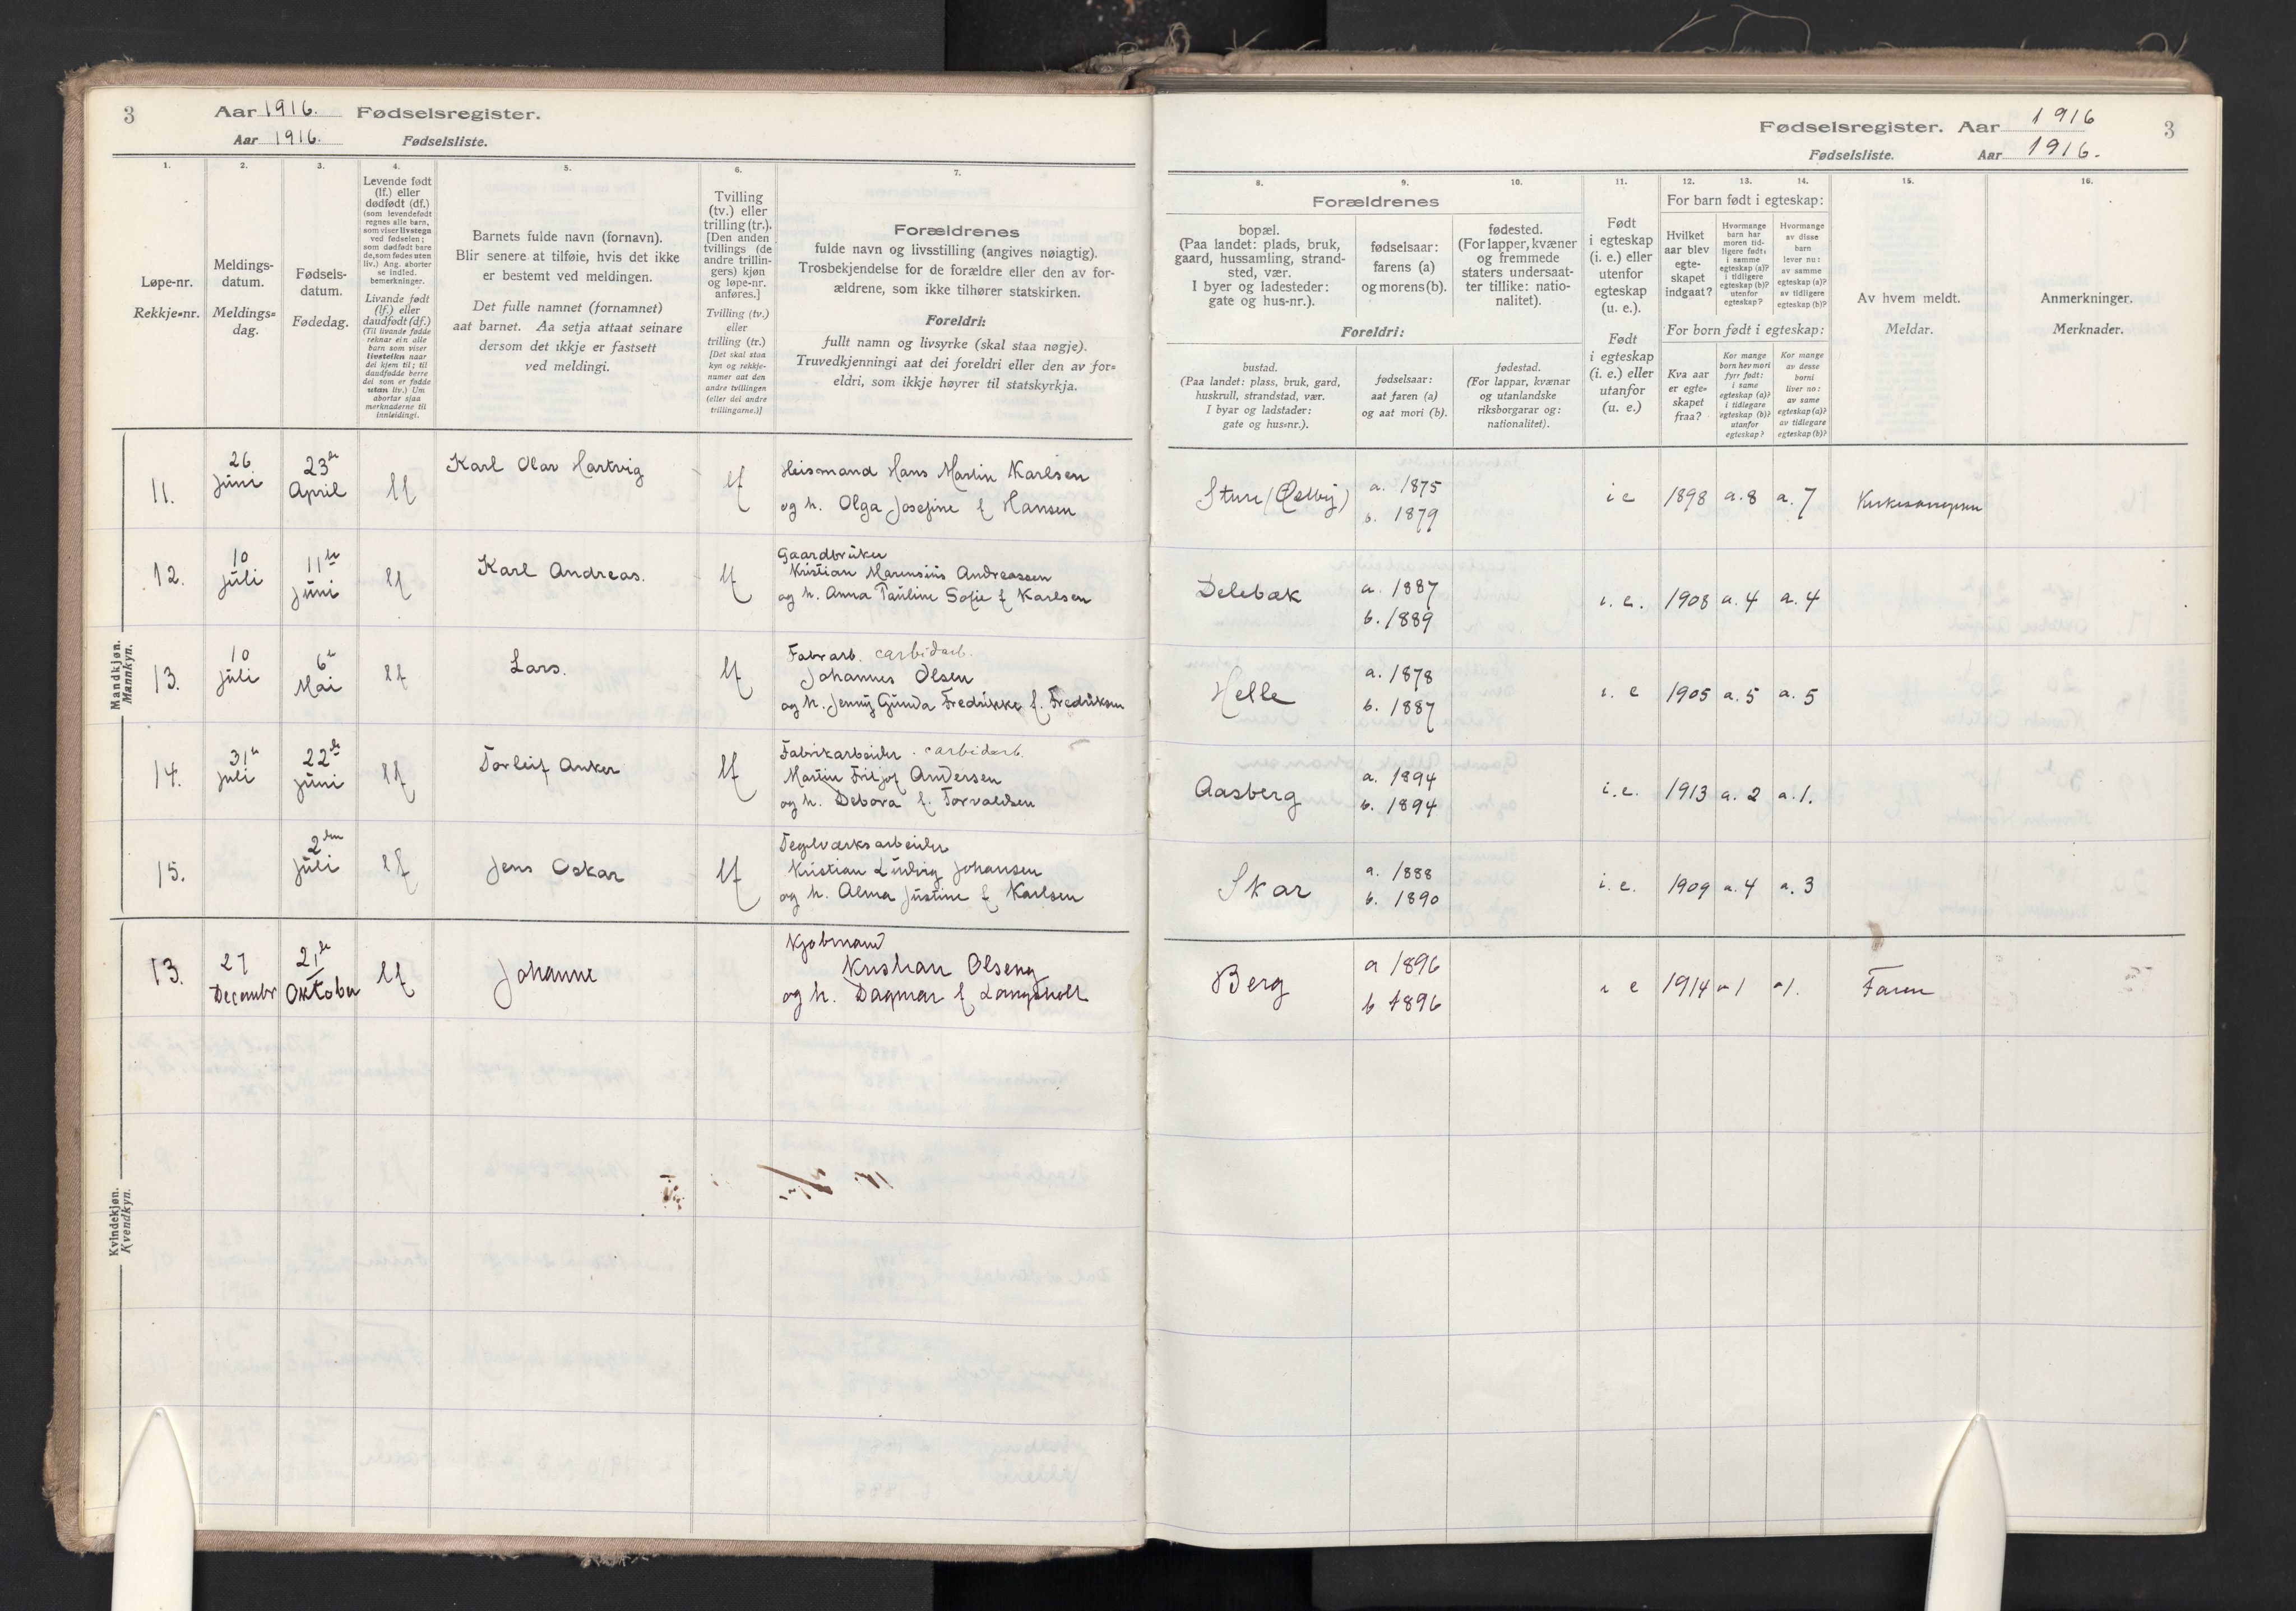 3 Aar 1916. Fødselsregister.
Aar 1916. Fødselsliste.
1.
Løpe-nr.
Rekkje-nr.
2.
Meldings-
datum.
Meldings-
dag.
3.
Fødsels-
datum.
Fødedag.
4.
Levende født
(lf.) eller
dødfødt (df.)
(som levendefødt
regnes alle barn,
som viser livstegn
ved fødselen;
som dødfødt bare
de, som fødes uten
liv.) Ang. aborter
se indled.
bemerkninger.
Livande født
(lf.) eller
daudfødt (df.)
(Til livande fødde
reknar ein alle
barn som viser
livsteikn naar
dei kjem til; til
daudfødde berre
dei som er fødde
utan liv.) Um
abortar sjaa
merknaderne til
innleidingi.
5.
Barnets fulde navn (fornavn).
Blir senere at tilføie, hvis det ikke
er bestemt ved meldingen.
Det fulle namnet (fornamnet)
aat barnet. Aa setja attaat seinare
dersom det ikkje er fastsett
ved meldingi.
6.
Tvilling
(tv.) eller
trilling (tr.).
[Den anden
tvillings (de
andre trillin-
gers) kjøn
og løpe-nr.
anføres.]
Tvilling (tv.)
eller
trilling (tr.)
[Det skal staa
kyn og rekkje-
numer aat den
andre tvillingen
(eller dei andre
trillingarne.)]
7.
Forældrenes
fulde navn og livsstilling (angives nøiagtig).
Trosbekjendelse for de forældre eller den av for-
ældrene, som ikke tilhører statskirken.
Foreldri:
fullt namn og livsyrke (skal staa nøgje).
Truvedkjenningi aat dei foreldri eller den av for-
eldri, som ikkje høyrer til statskyrkja.
Mandkjøn.
Mannkyn.
11. 26 Juni 23de April lf Karl Olav Hartvig lf
Heismand Hans Martin Karlsen
og h. Olga Josefine f Hansen
12. 10 juli 11te juni lf Karl Andreas. lf
Gaardbruker
Kristian Marensius Andreassen
og h. Anna Pauline Sofie f Karlsen
13. 10 juli 6te Mai lf Lars. lf
Fabrarb. carbidarb.
Johannes Olsen
og h. Jenny Gunda Fredrikke f. Fredriksen
14. 31te juli 22de juni lf Torleif Anker lf
Fabrikarbeider. carbidarb.
Martin Fritjof Andersen
og h. Debora f. Torvaldsen
15. 2den Juli lf Jens Oskar lf
Teglværksarbeider
Kristian Ludvig Johansen
og h. Alma Justine f Karlsen
Kvindekjøn.
Kvendkyn.
13. 27 December 21de Oktober lf Johanne
Kjøbmand
Kristian Olseng
og h. Dagmar f Langsholt
Fødselsregister. Aar 1916 3
Fødselsliste. Aar 1916.
8.
Forældrenes
bopæl.
(Paa landet: plads, bruk,
gaard, hussamling, strand-
sted, vær.
I byer og ladesteder:
gate og hus-nr.).
Foreldri:
bustad.
(Paa landet: plass, bruk, gard,
huskrull, strandstad, vær.
I byar og ladstader:
gate og hus-nr.).
9.
fødselsaar:
farens (a)
og morens (b).
fødselsaar:
aat faren (a)
og aat mori (b).
10.
fødested.
(For lapper, kvæner
og fremmede
staters undersaat-
ter tillike: natio-
nalitet).
fødestad.
(For lappar, kvænar
og utanlandske
riksborgarar og:
nationalitet).
11.
Født
i egteskap
(i. e.) eller
utenfor
egteskap
(u. e.).
Født
i egteskap
(i. e.) eller
utanfor
(u. e.)
12. 13. 14.
For barn født i egteskap:
Hvilket
aar blev
egte-
skapet
indgaat?
Hvormange
barn har
moren tid-
ligere født:
i samme
egteskap (a)?
i tidligere
egteskap (b)?
utenfor
egteskap?
Hvormange
av disse
barn
lever nu:
av samme
egteskap (a)?
av tidligere
egteskap (b)?
For born født i egteskap:
Kva aar
er egte-
skapet
fraa?
Kor mange
born hev mori
fyrr født:
i same
egteskap (a)?
i tidlegare
egteskap (b)?
utanfor
egteskap?
Kor mange
av desse
borni
liver no:
av same
egteskap (a)?
av tidlegare
egteskap (b)?
15.
Av hvem meldt.
Meldar.
16.
Anmerkninger.
Merknader.
Sture (Østby) a. 1875 b. 1879 i e 1898 a. 8 a. 7 Kirkesangeren
Delebæk a. 1887 b. 1889 i. e. 1908 a. 4 a. 4
Helle a. 1878 b. 1887 i. e 1905 a. 5 a. 5
Aasberg a. 1894 b. 1894 i. e. 1913 a. 2 a. 1.
Skar a. 1888 b. 1890 i. e. 1909 a. 4 a. 3
Berg a 1896 b 1896 i e 1914 a 1 a 1. Faren